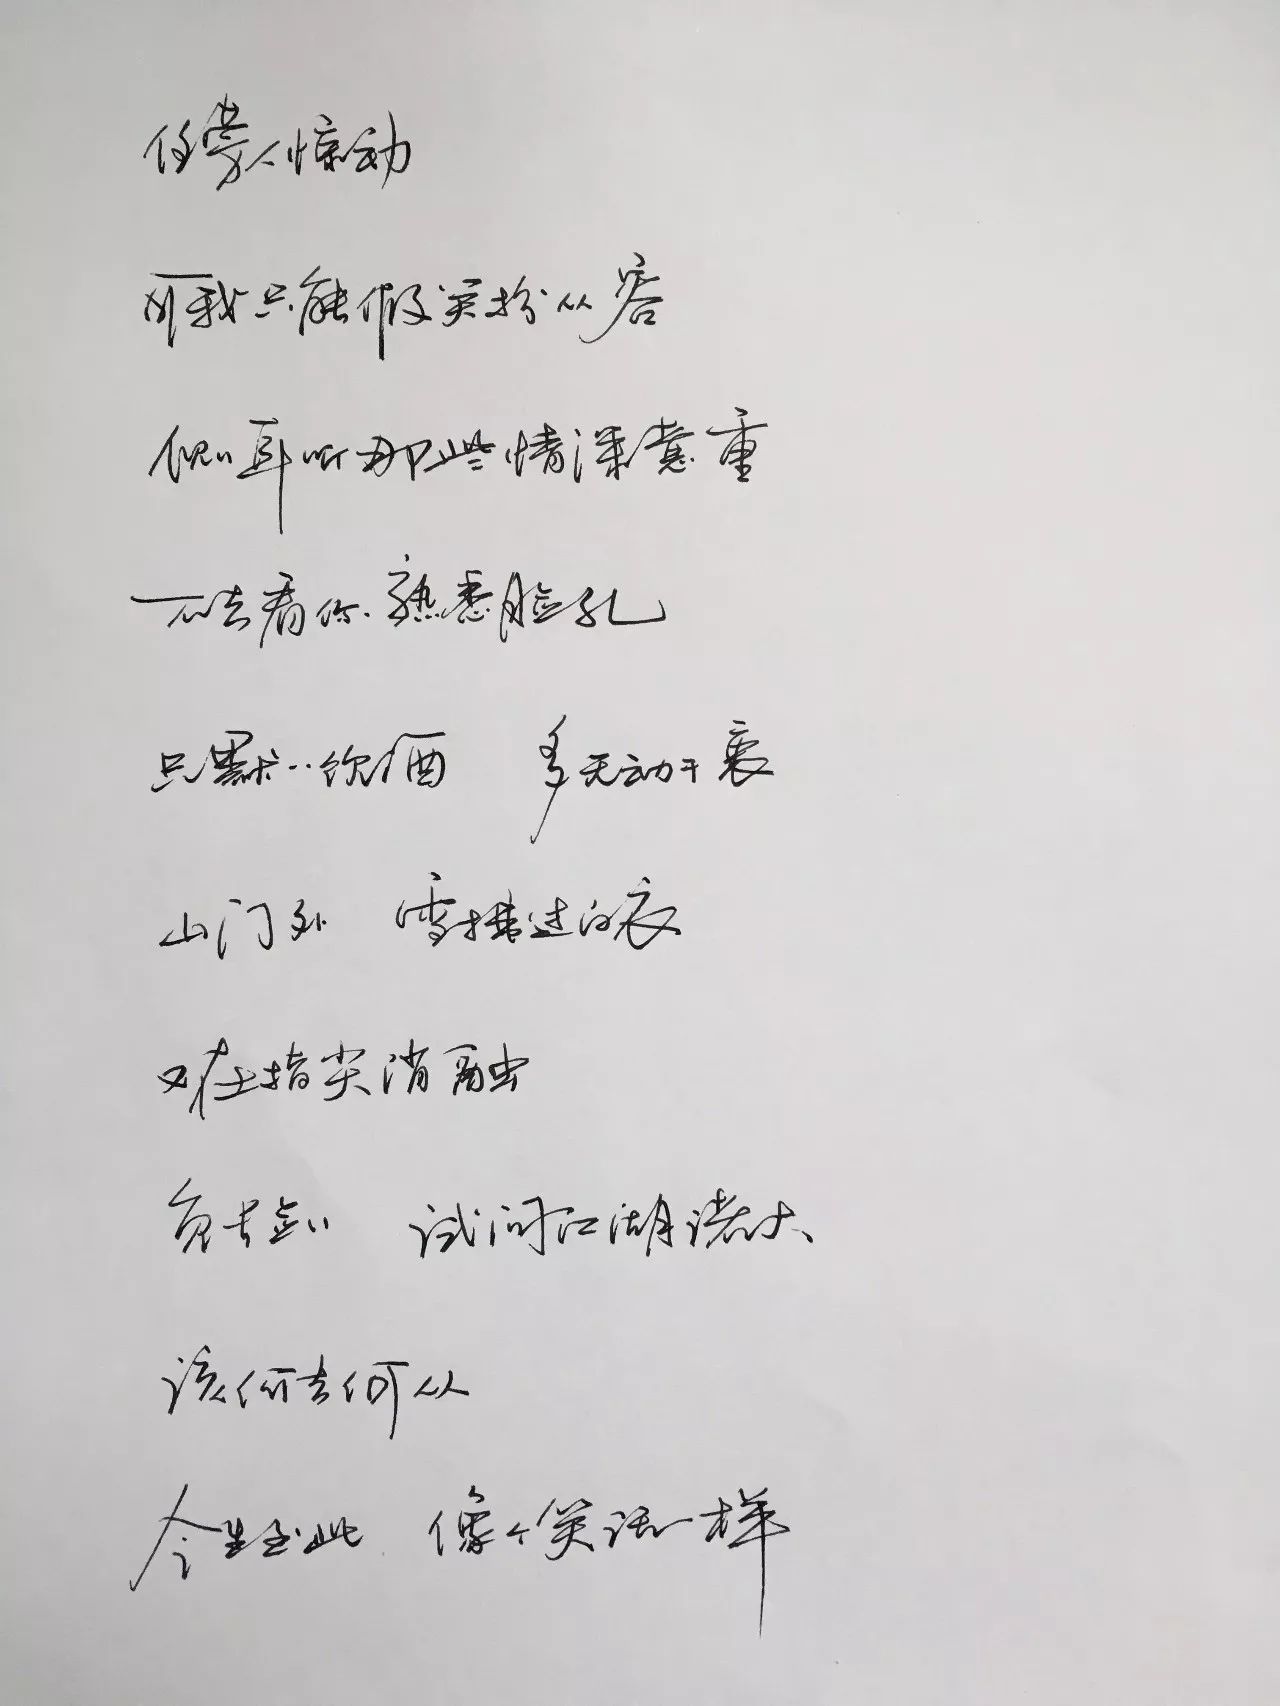 任旁人惊动
可我只能假笑扮从容
侧耳听那些情深意重
不去看你熟悉脸孔
只默默饮酒 多无动于衷
山门外 雪拂过白衣
又在指尖消融
负长剑 试问江湖诸大
该何去何从
今生至此 像个笑话一样